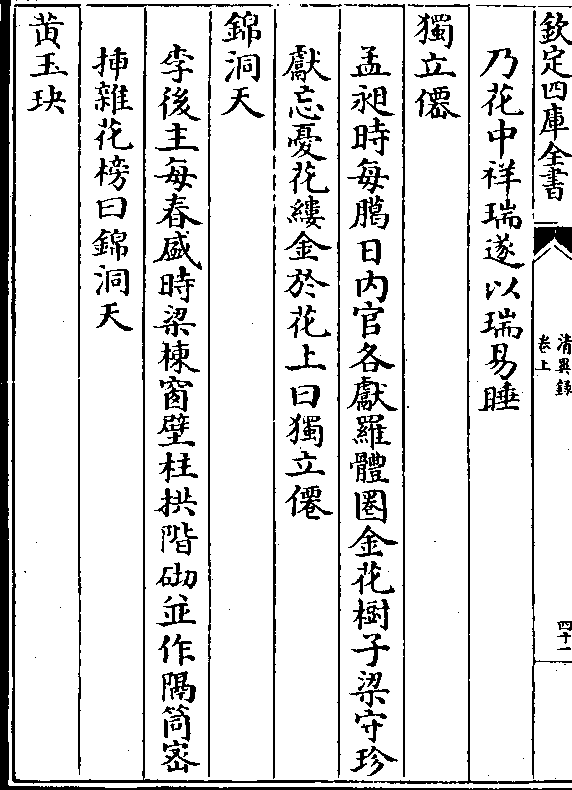 欽定四庫全書
清異錄
卷上
四十一
乃花中祥瑞遂以瑞易睡
獨立僊
孟昶時每臈日内官各獻羅體圏金花樹子梁守珍
獻忘憂花縷金於花上曰獨立僊
錦洞天
李後主每春盛時梁棟窗壁柱拱階砌並作隔筒宻
揷雜花榜曰錦洞天
黃玉玦